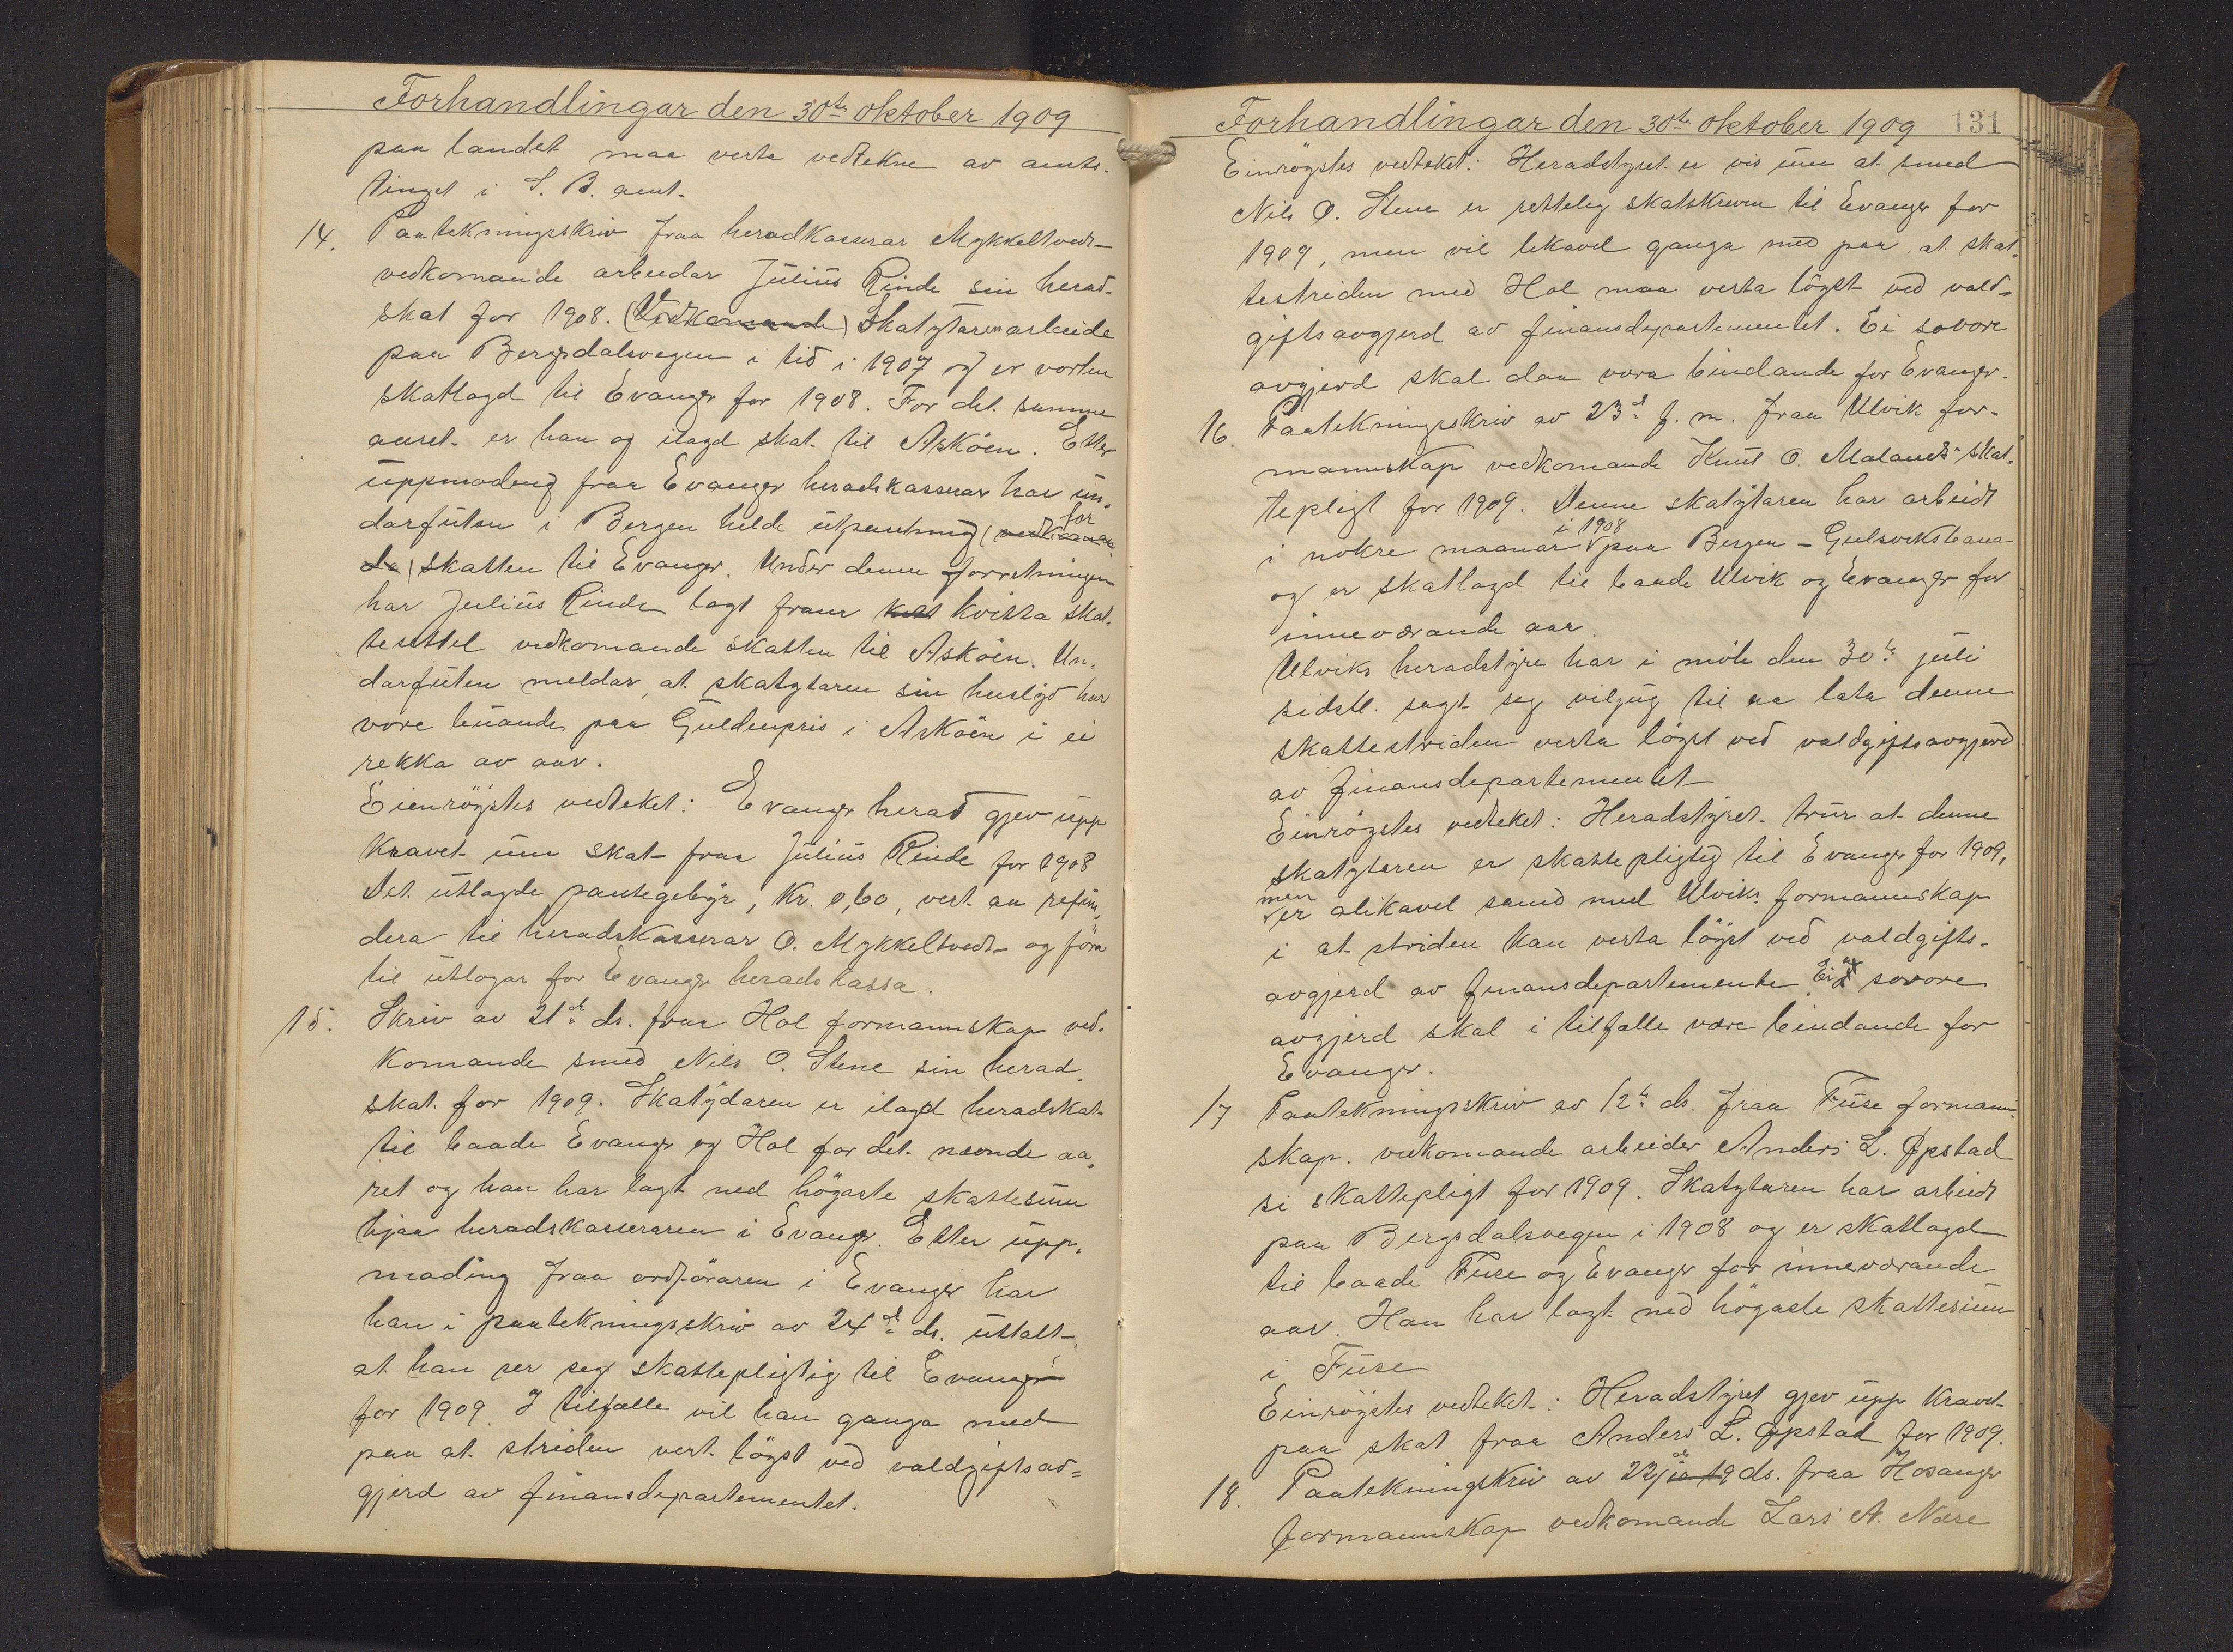 Forhandlingar den 30te oktober 1909
paa landet maa verta vedtekne av amts-
tinget i S. B. amt.
14. Paatekningsskriv fraa heradkasserar Mykkeltvedt
vedkomande arbeidar Julius Rinde sin herad-
skat for 1908. (Vedkomande) Skatytaren arbeide
paa Bergsdalsvegen i tid i 1907 og er vorten
skatlagd til Evanger for 1908. For det samme
aaret er han og ilagd skat til Asköen. Etter
uppmoding fraa Evanger heradskasserar har un-
darfuten i Bergen helde utpantning (vedkoman- for
de) skatten til Evanger. Under denne forretningen
har Julius Rinde lagt fram kvitta skat-
tesettel vedkomande skatten til Asköen. Un-
darfuten meldar, at skatytaren sin huslyd har
vore buande paa Gyldenpris i Asköen i ei
rekka av aar.
Eienröystes vedteket: Evanger herad gjev upp
kravet um skat fraa Julius Rinde for 1908
Det utlagde pantegebyr, Kr. 0,60, vert aa refun-
dera til heradskasserar O. Mykkeltvedt og föra
til utlogar for Evanger heradskassa.
15. Skriv av 21de ds. fraa Hol formannskap ved-
komande smed Nils O. Stene sin herad-
skat for 1909. Skatydaren er ilagd heradskat
til baade Evanger og Hol for det nevnde aa-
ret og han har lagt ned högaste skattesum
hjaa heradskasseraren i Evanger. Etter upp-
moding fraa ordföraren i Evanger har
han i paatekningsskriv av 24de ds. uttalt
at han ser seg skattepligtig til Evanger
for 1909. I tilfælle vil han ganga med
paa at striden vert löyst ved valdgiftsav=
gjerd av finansdepartementet.
Forhandlingar den 30te oktober 1909 131
Einröystes vedteket: Heradstyret er vis um at smed
Nils O. Stene er retteleg skatskreven til Evanger for
1909, men vil likavel ganga med paa at skat-
testriden med Hol maa verta löyst ved vald-
giftsavgjerd av finansdepartementet. Ei sovore
avgjerd skal daa vera bindande for Evanger.
16. Paatekningsskriv av 23de f. m. fraa Ulvik for-
mannskap vedkomande Knut O. Malands skat-
tepligt for 1909. Denne skatytaren har arbeidt
i nokre maanar i 1908 paa Bergen - Gulsviksbana
og er skatlagd til baade Ulvik og Evanger for
inneverande aar.
Ulviks heradstyre har i möte den 30te juli
sidstl. sagt seg viljug til aa lata denne
skattestriden verta löyst ved valdgiftsavgjerd
av finansdepartementet
Einröystes vedteket: Heradstyret trur at denne
skatytaren er skattepligtig til Evanger for 1909,
men er alikavel samd med Ulviks formannskap
i at striden kan verta löyst ved valdgifts-
avgjerd av finansdepartemente. Ei sovore
avgjerd skal i tilfælle være bindande for
Evanger.
17 Paatekningsskriv av 12te ds. fraa Fuse formann-
skap. vedkomande arbeider Anders L. Øpstad
si skattepligt for 1909. Skatytaren har arbeidt
paa Bergsdalsvegen i 1908 og er skatlagd
til baade Fuse og Evanger for inneverande
aar. Han har lagt ned högaste skattesum
i Fuse
Einröystes vedteket: Heradstyret gjev upp kravet
paa skat fraa Anders L. Øpstad for 1909.
18. Paatekningskriv av 22de ds. fraa Hosanger
formannskap vedkomande Lars A. Nese